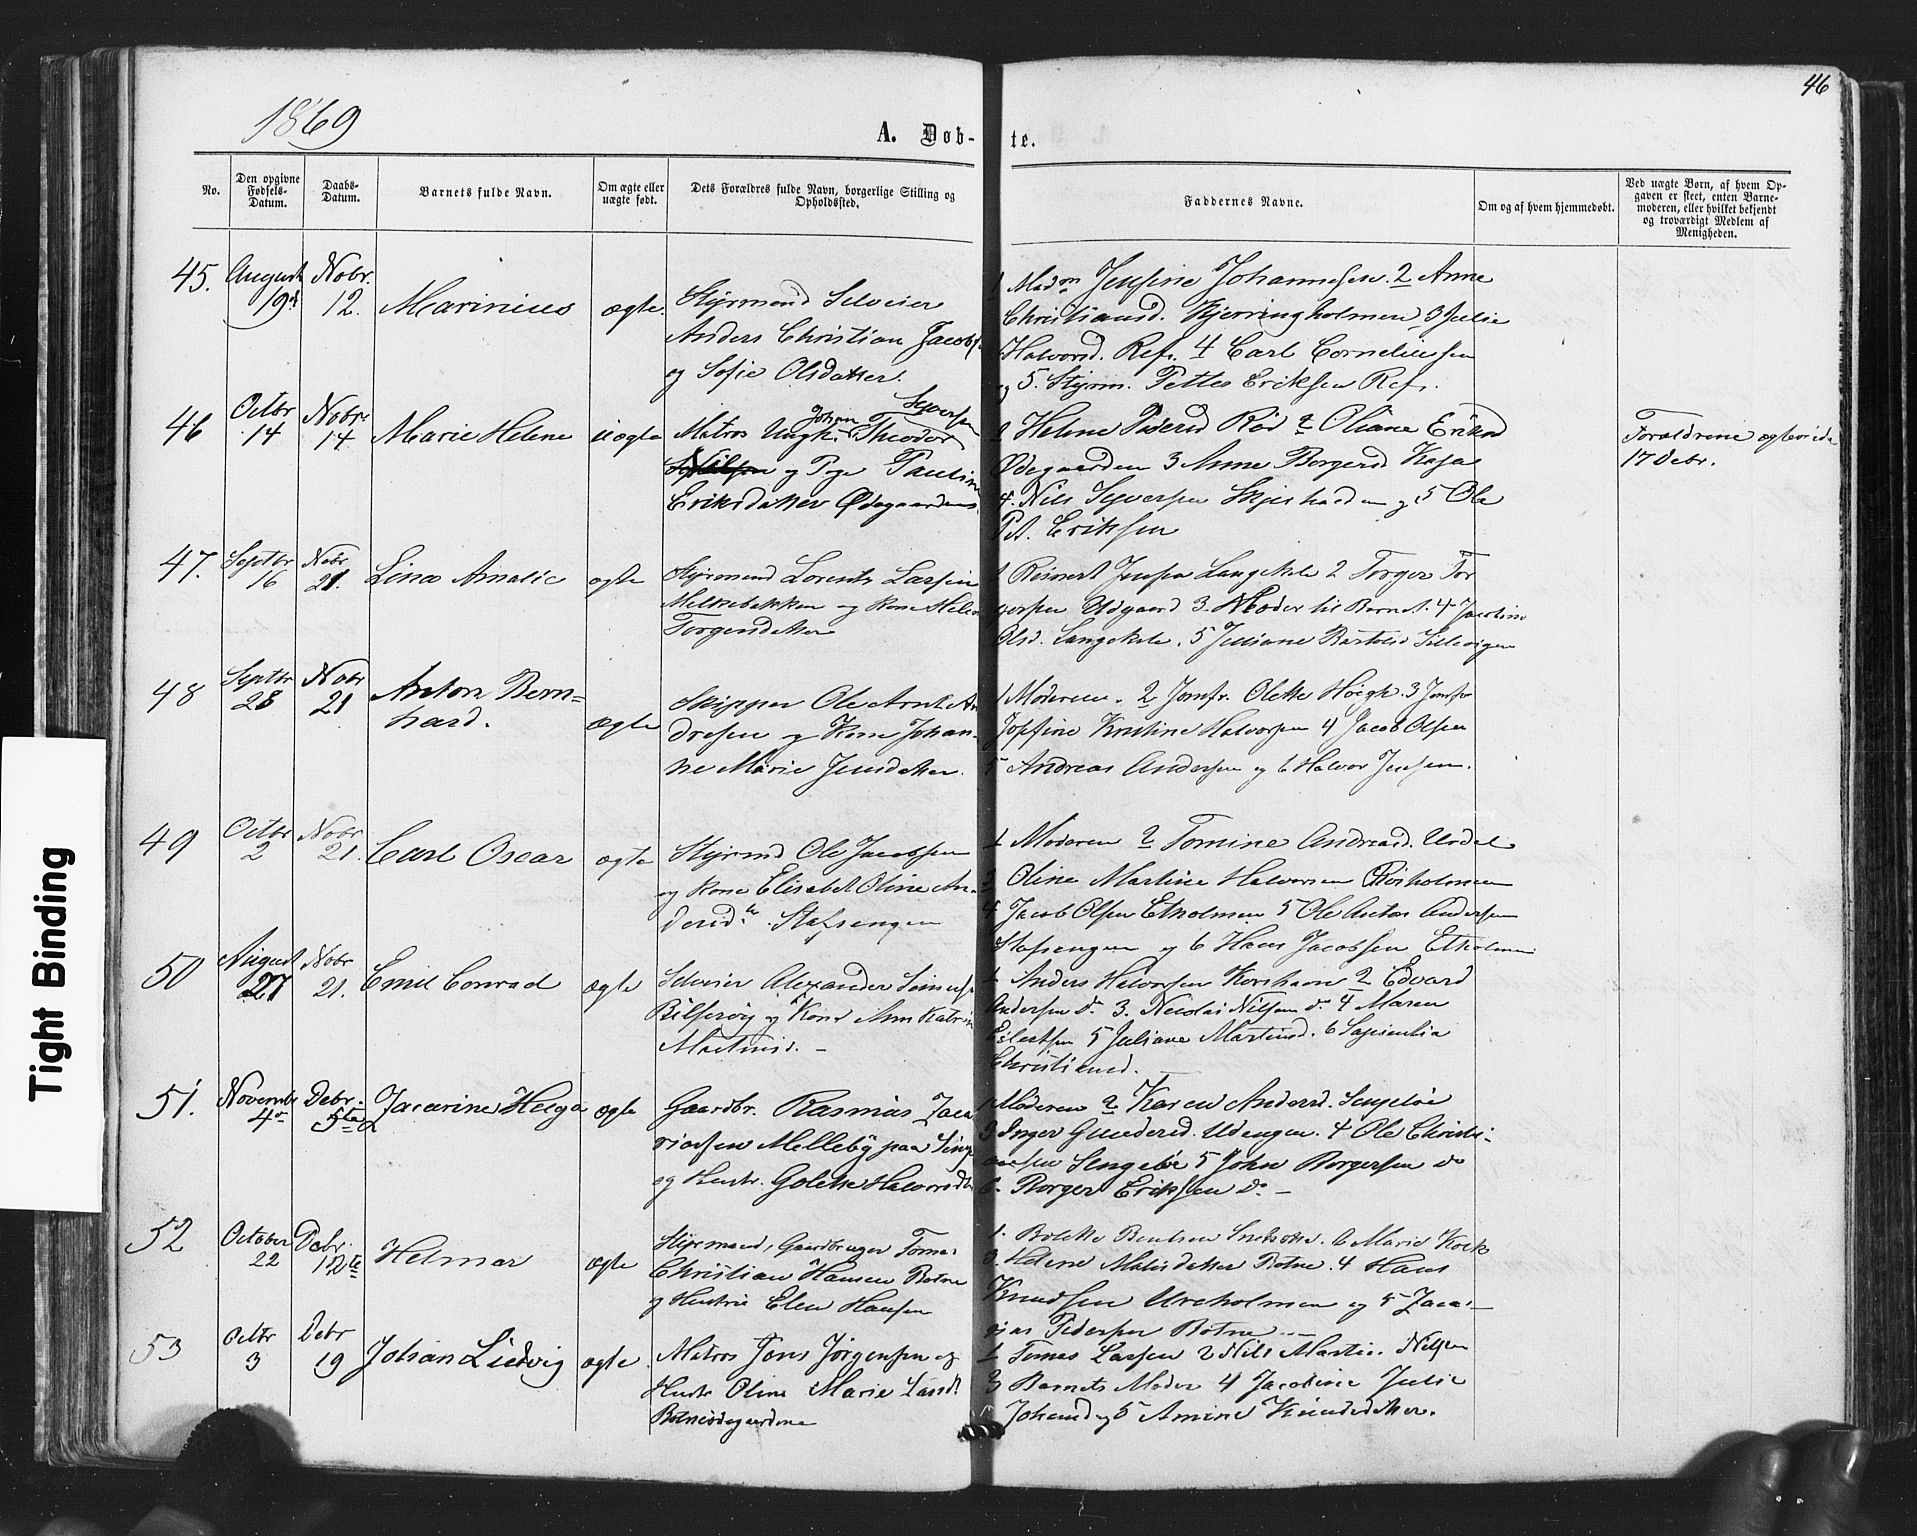 1869
46
A. Døb-
te.
No.
Den opgivne
Fødsels-
Datum.
Daabs-
Datum.
Barnets fulde Navn.
Om ægte eller
uægte født.
Dets Forældres fulde Navn, borgerlige Stilling og
Opholdssted.
Faddernes Navne.
Om og af hvem hjemmedøbt.
Ved uægte Børn, af hvem Op-
gaven er skeet, enten Barne-
moderen, eller hvilket bekjendt
og troværdigt Medlem af
Menigheden.
45.
August
19de
Nobr.
12.
Marinius
ægte.
Styrmand Selveier
Anders Christian Jacobs
og Sofie Olsdatter.
1 Madm Jensine Johannesen. 2 Anne
Christiansd. Kjerringholmen 3 Julie
Halvorsd. Refs. 4 Carl Corneliussen
og 5. Styrm. Petter Eriksen Refs.
46
Octbr
14
Nobr
14
Marie Helene
uægte
Matros Ungk. Johan Theodor Syversen
og Pige Pauline
Eriksdatter Ødegaarden
1 Helene Pedersd Rød 2 Oliane Eriksd
Ødegaarden 3 Anne Borgersd Kasa
4. Nils Syversen og 5 Ole
Pet. Eriksen
Forældrene ægteviede
17 Debr.
47.
Septbr
16
Nobr
21.
Lina Amalie
ægte
Styrmand Lorents Larsen
Melkebakken og Kone Helene
Torgersdatter
1 Reinert Jensen Langekile 2 Torger Tor
gersen Udgaard 3. Moder til Barnet. 4 Jacobine
Olsd. Langekile. 5 Juliane
48
Septbr
28
Nobr
21
Anton Bern=
hard.
ægte
Skipper Ole Arnt An
dresen og Kone Johan-
ne Marie Jensdatter.
1 Moderen. 2 Jomfr. Olette Høegh. 3 Jomfr
Josfine Kristine Halvorsen 4 Jacob Olsen
5 Andreas Andersen og 6 Halvor Jensen.
49
Octbr
2
Nobr
21.
Carl Oscar
ægte
Styrmd Ole Jacobsen
og Kone Elisabet Oline An-
dersdtr. Stafsengen
1 Moderen 2 Tomine Andreasd.
3 Oline Martine Halvorsen
4 Jacob Olsen Etholmen 5 Ole Anton Andersen
Stafsengen og 6 Hans Jacobsen Etholmen
50
August
27
Nobr
21.
Emil Conrad
ægte
Selveier Alexander Simens
og Kone Ann Katrine
Martinsd. -
1 Anders Halvorsen Korshavn 2 Edvard
Andersen do 3. Nicolai Nilsen do 4 Maren
5 Juliane Martinsd. 6 Sapientia
Christiansd.
51.
Novembr
4de
Debr.
5te
Jacarine Helga
ægte
Gaardbr. Rasmus Jaca
riassen Melleby paa
og Hustr. Golette Halvorsdtr
1 Moderen 2 Karen Andersd.
3 Inger Gundersd. Udengen. 4 Ole Christi-
ansen 5 John Borgersen do
6. Borger Eriksen do -
52
October
22
Debr.
12te
Helmar
ægte
Styrmand, Gaardbruger Tomas
Christian Hansen Botne
og Hustru Elen Hansen
1. Bolette Bentsen 2 Marie Kok
3 Helene Botne. 4 Hans
Knudsen Ureholmen og 5 Zaca-
rias Pedersen Botne.
53
Octbr
3
Debr
19
Johan Ludvig
ægte
Matros Jens Jørgensen og
Hustr Oline Marie
Botneødegaardene
1 Tomas Larsen 2 Nils Martin. Nilsen
3 Barnets Moder 4 Jacobine Julie
Johansd og 5 Amine Knudsdatter.
Tight Binding